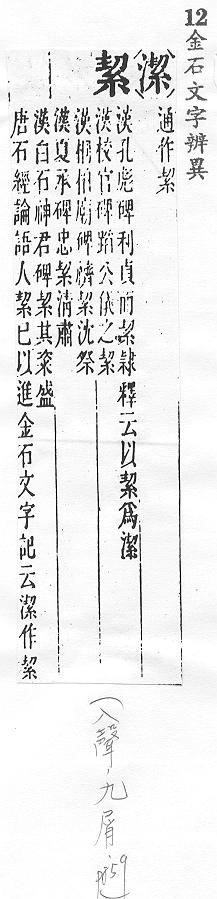 12金石文字辨異
潔 絜
通作絜
漢孔彪碑利貞而絜隸釋云以絜爲潔
漢校官碑蹈公儀之絜
漢桐柏廟碑齊絜沈祭
漢夏承碑忠絜清肅
漢白石神君碑絜其粢盛
唐石經論語人絜己以進金石文字記云潔作絜
(入聲,九屑
59